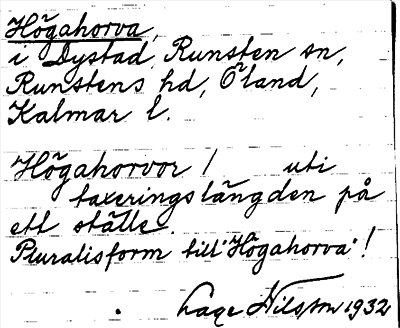 Högahorva,
i Dystad, Runsten sn,
Runstens hd, Öland,
Kalmar l.
Högahorvor / uti
taxeringslängden på
ett ställe.
Pluralisform till "Högahorva"!
Lage Nilsson 1932